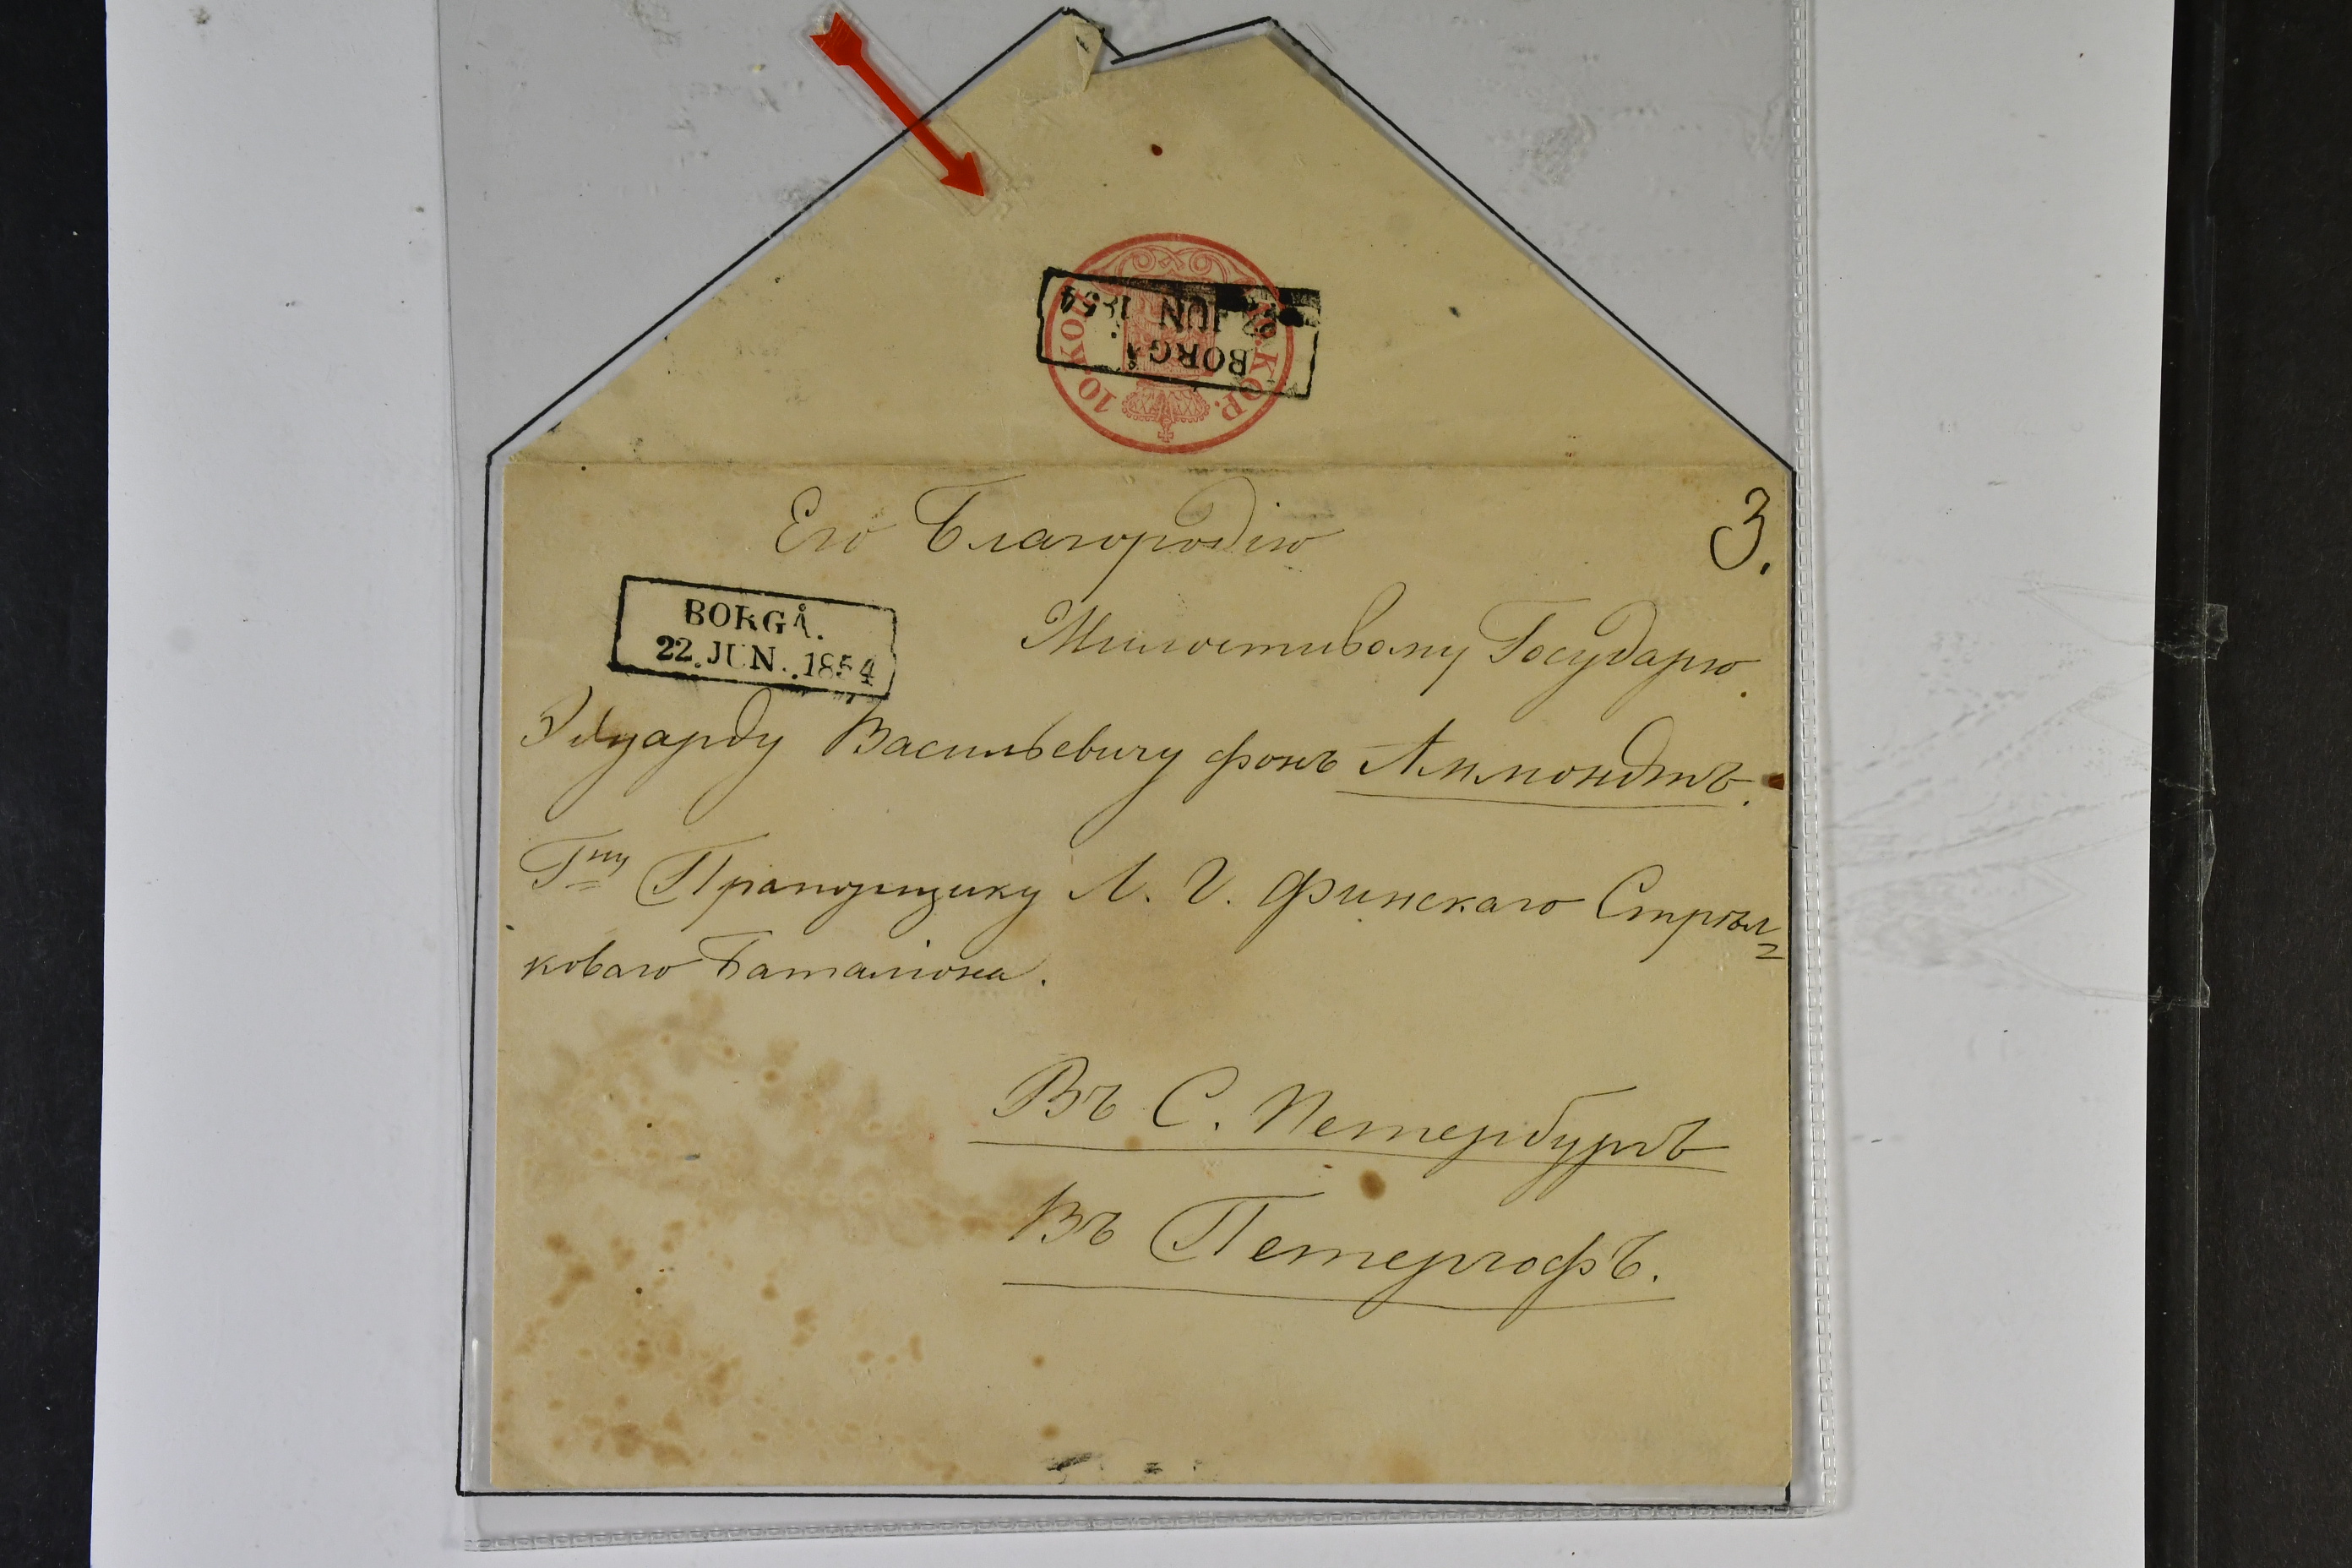 10.KOP. 10.KOP.
BORGÅ
22 JUN 1854
Его Благородію
3.
BORGÅ.
22.JUN.1854
Милостивому Государю
Эдуарду Васильевичу фонъ Аммондтъ.
Гну Прапорщику Л. Г. Финскаго Стрѣл=
коваго Баталіона.
Въ С. Петербургъ
Въ Петергофъ.